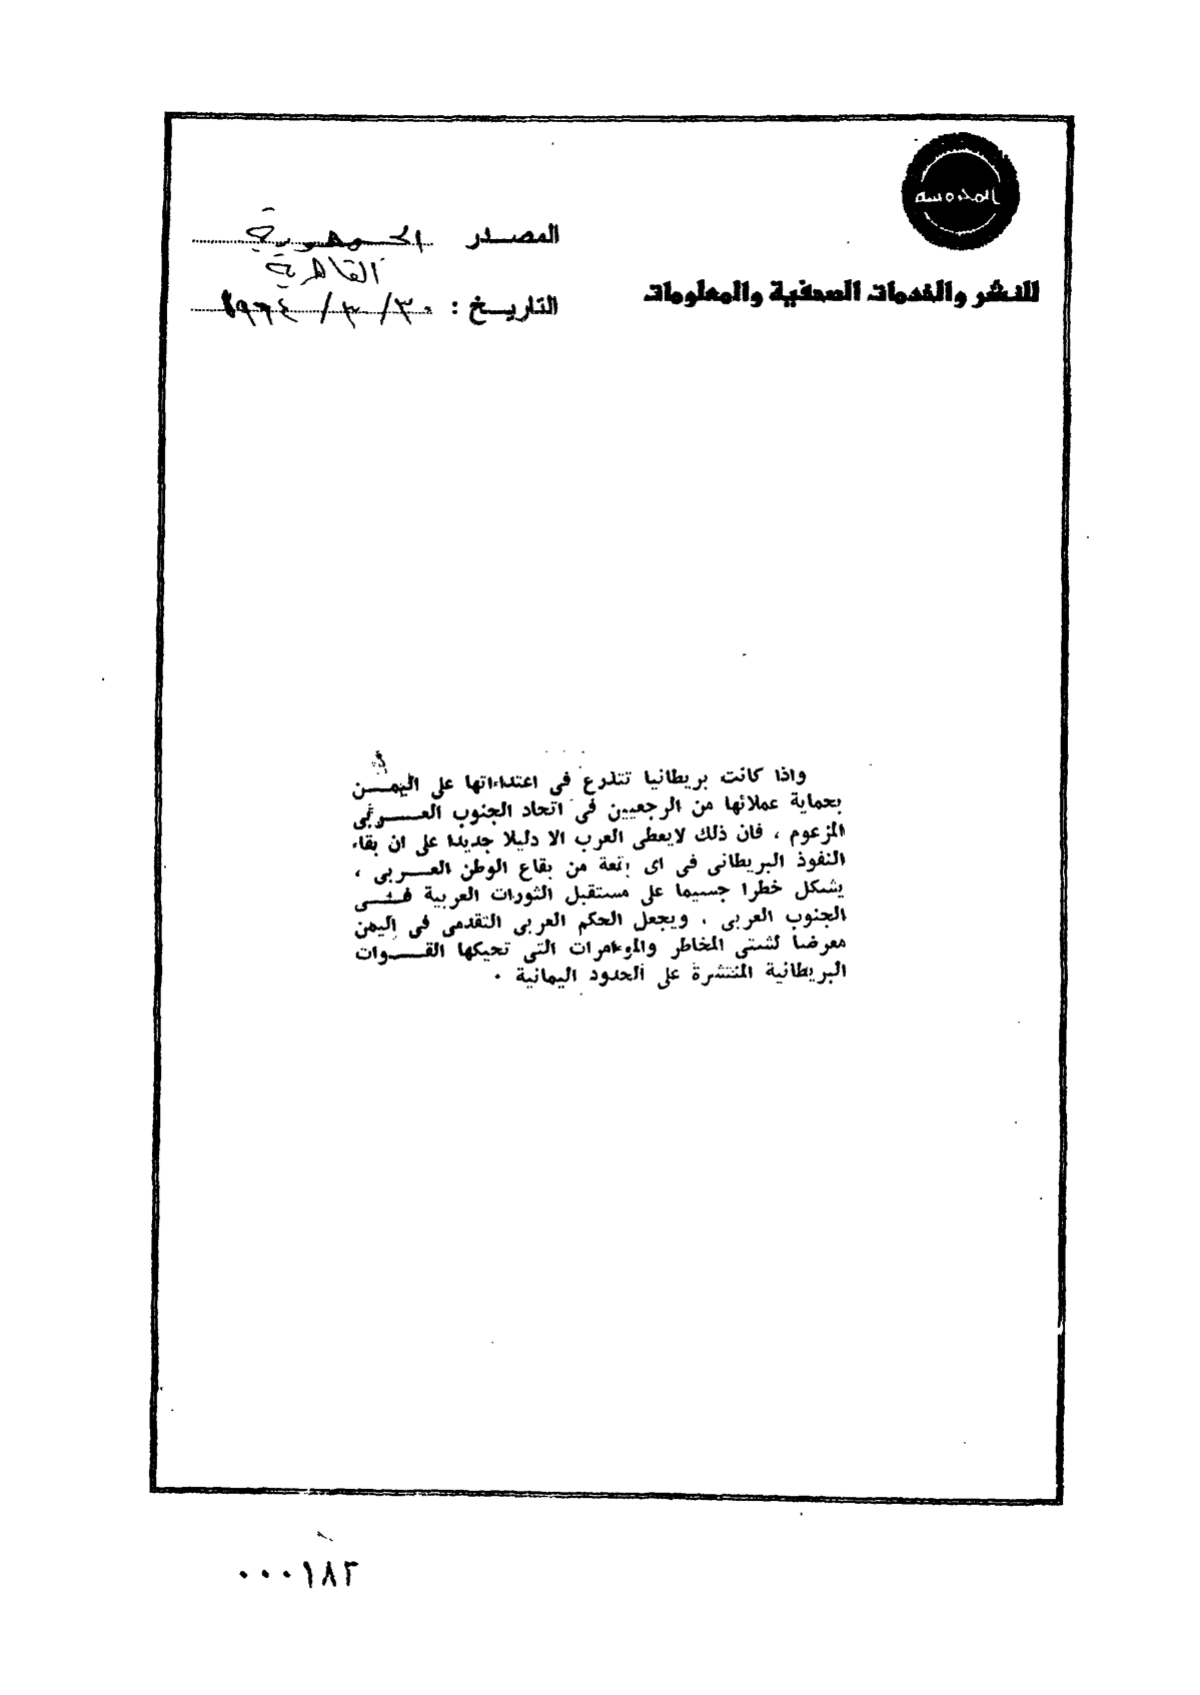 المحروسة
للنشر والخدمات الصحفية والمعلومات
المصدر الجمهورية
القاهرية
التاريخ : ٣٠/٣/١٩٦٤
واذا كانت بريطانيا تتذرع فى اعتداءاتها على اليمن
بحماية عملائها من الرجعيين فى اتحاد الجنوب العربى
المزعوم ، فان ذلك لايعطى العرب الا دليلا جديدا على ان بقاء
النفوذ البريطانى فى اى بقعة من بقاع الوطن العربى ،
يشكل خطرا جسيما على مستقبل الثورات العربية فى
الجنوب العربى ، ويجعل الحكم العربى التقدمى فى اليمن
معرضا لشتى المخاطر والمؤامرات التى تحيكها القوات
البريطانية المنتشرة على الحدود اليمانية .
٠٠٠١٨٢